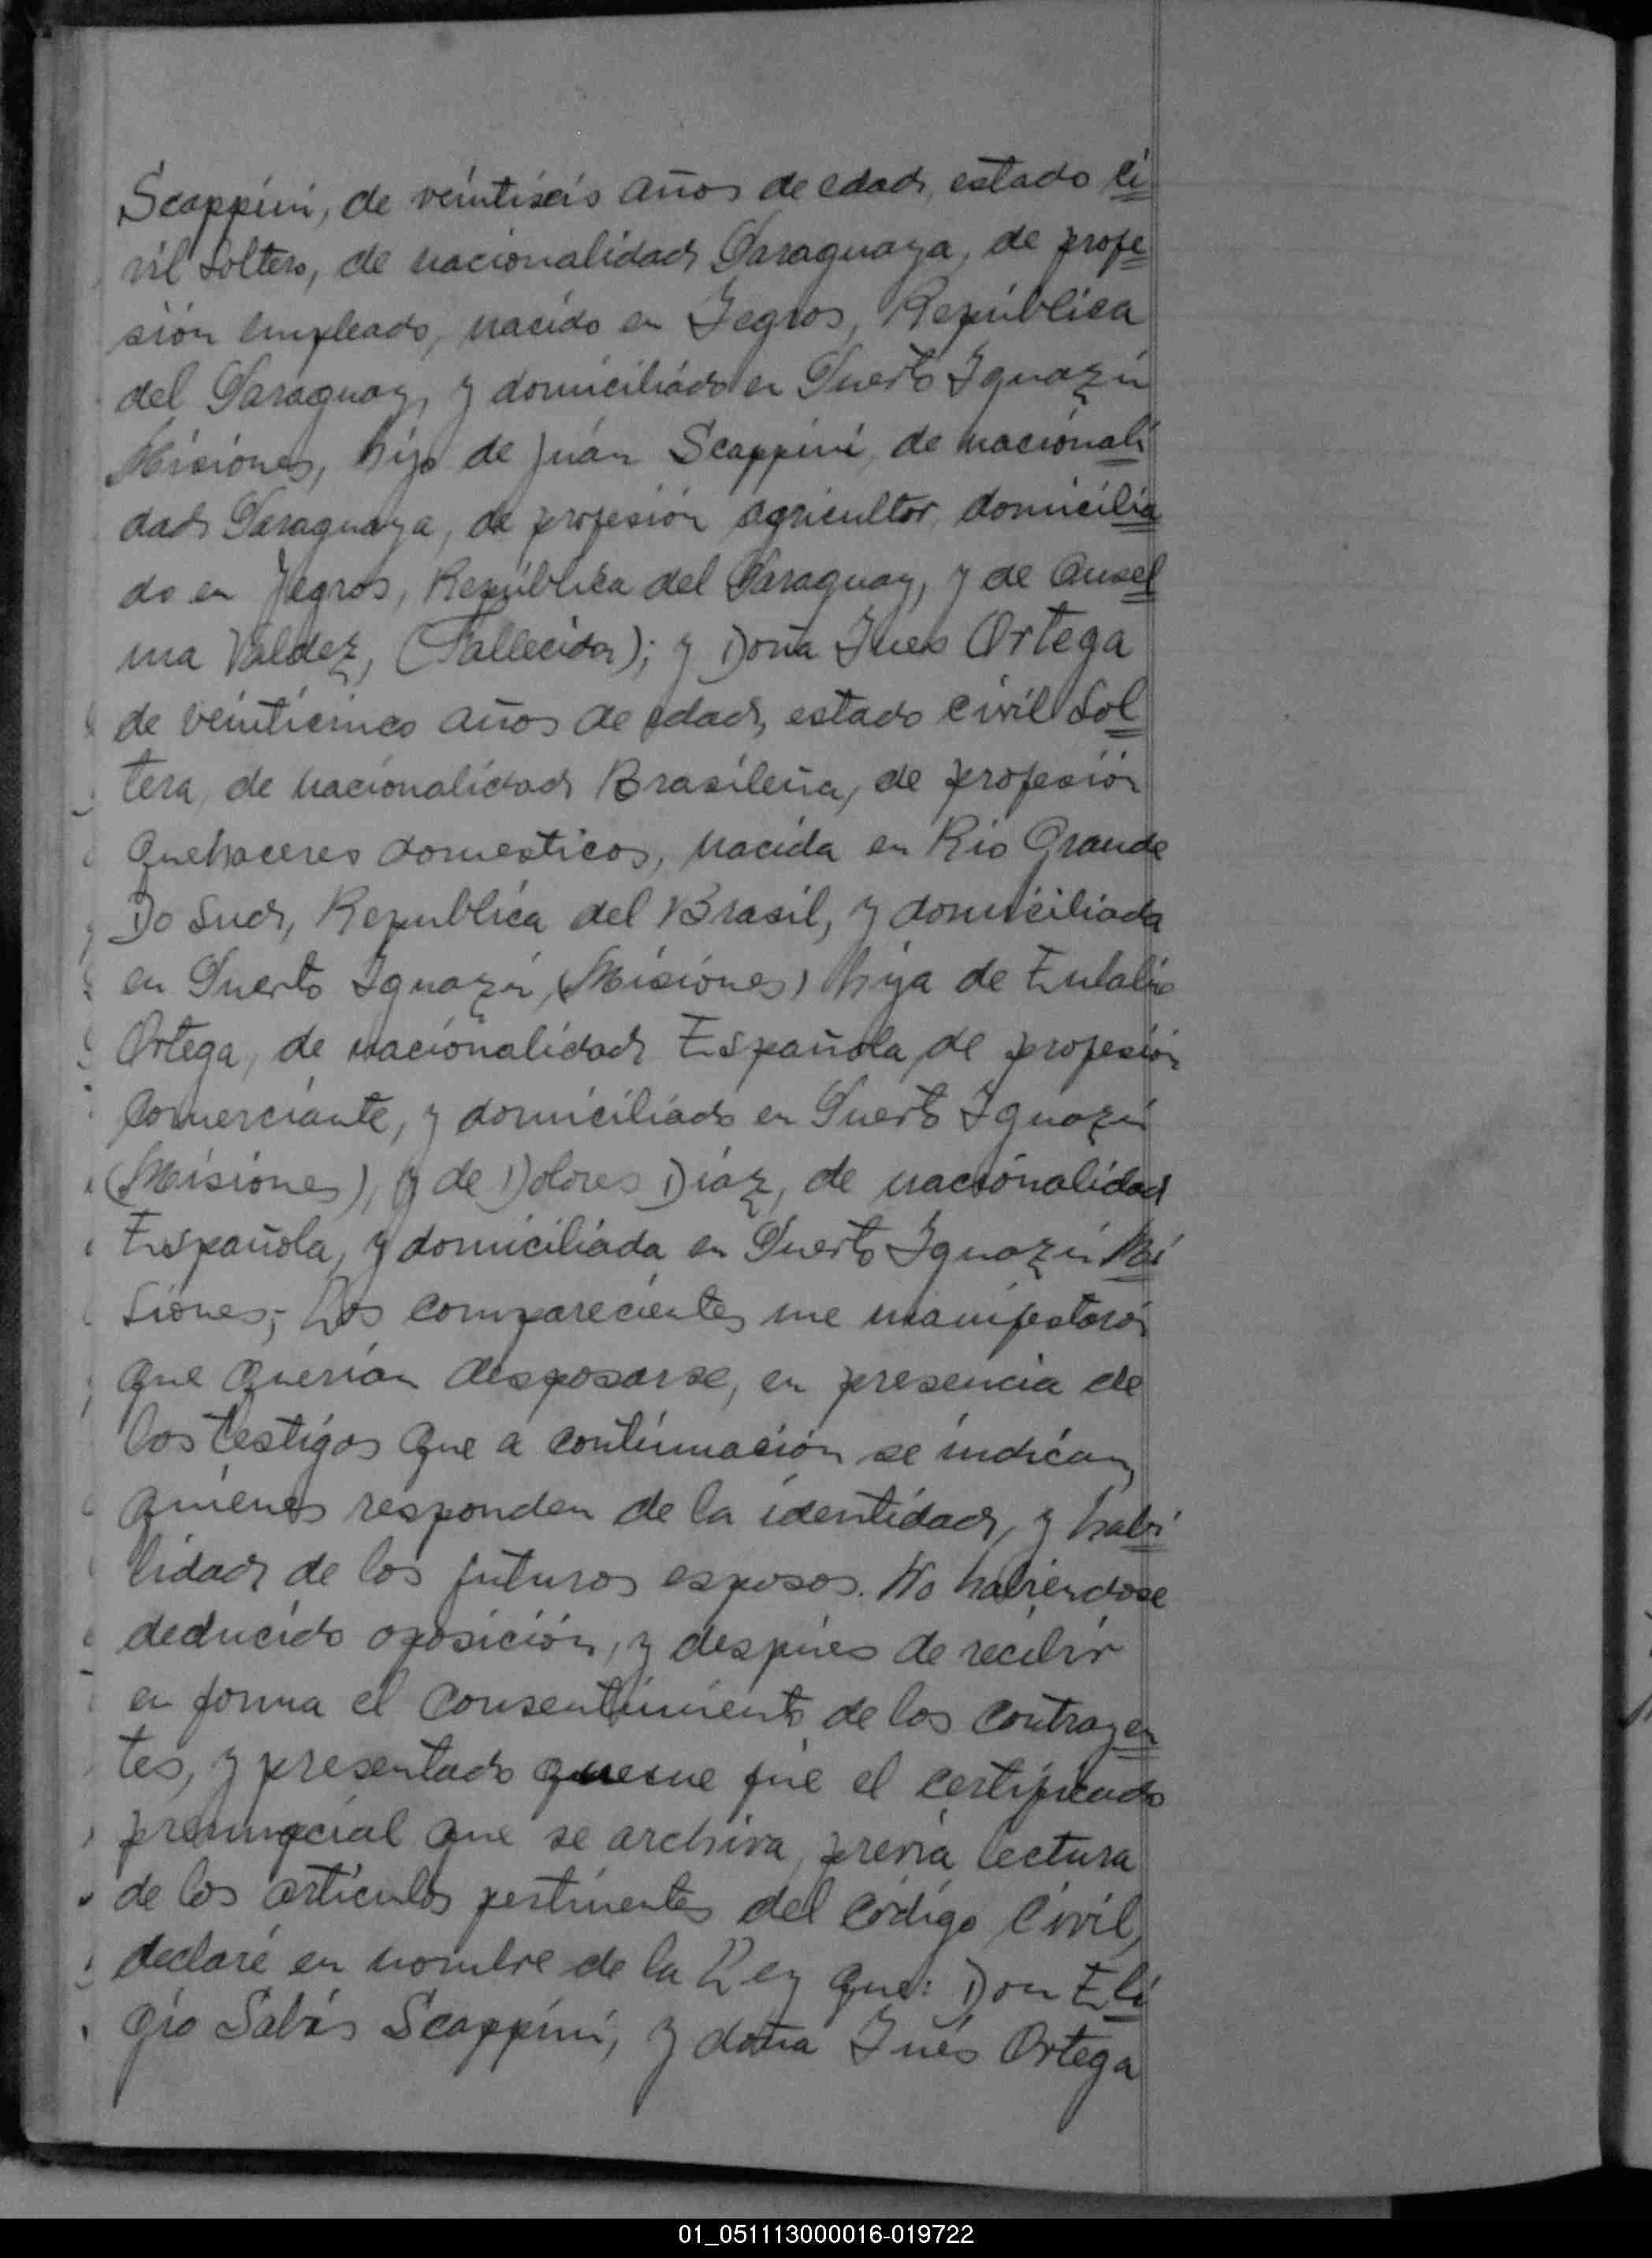 Scappini, de veintiseis años de edad, estado ci
vil soltero, de nacionalidad Paraguaya, de profe
sión empleado, nacido en Yegros, República
del Paraguay, y domiciliado en Puerto Iguazú
Misiones, hijo de Juán Scappini, de nacionali
dad Paraguaya, de profesión agricultor, domicilia
do en Yegros, República del Paraguay, y de Ansel
ma Valdez, (Fallecida); y Doña Ines Ortega
de veinticinco años de edad, estado civil Sol
tera, de nacionalidad Brasileña, de profesión
Quehaceres domesticos, nacida en Rio Grande
Do Sud, Republica del Brasil, y domiciliada
en Puerto Iguazú, (Misiones) hija de Eulalio
Ortega, de nacionalidad Española, de profesión
Comerciante, y domiciliado en Puerto Iguazú
(Misiones), y de Dolores Diaz, de nacionalidad
Española, y domiciliada en Puerto Iguazú Mi
siones;- Los comparecientes me manifestarón
que querian desposarse, en presencia de
los testigos que a continuación se indican,
quienes responden de la identidad, y habi
lidad de los futuros esposos. No habiendose
deducido oposición, y despúes de recibir
en forma el consentimiento de los contrayen
tes, y presentado que me fué el certificado
prenupcial que se archiva, previa lectura
de los artículos pertinentes del código Civil,
declaré en nombre de la Ley que: Don Eli
gio Sabás Scappini, y doña Inés Ortega
01_051113000016-019722